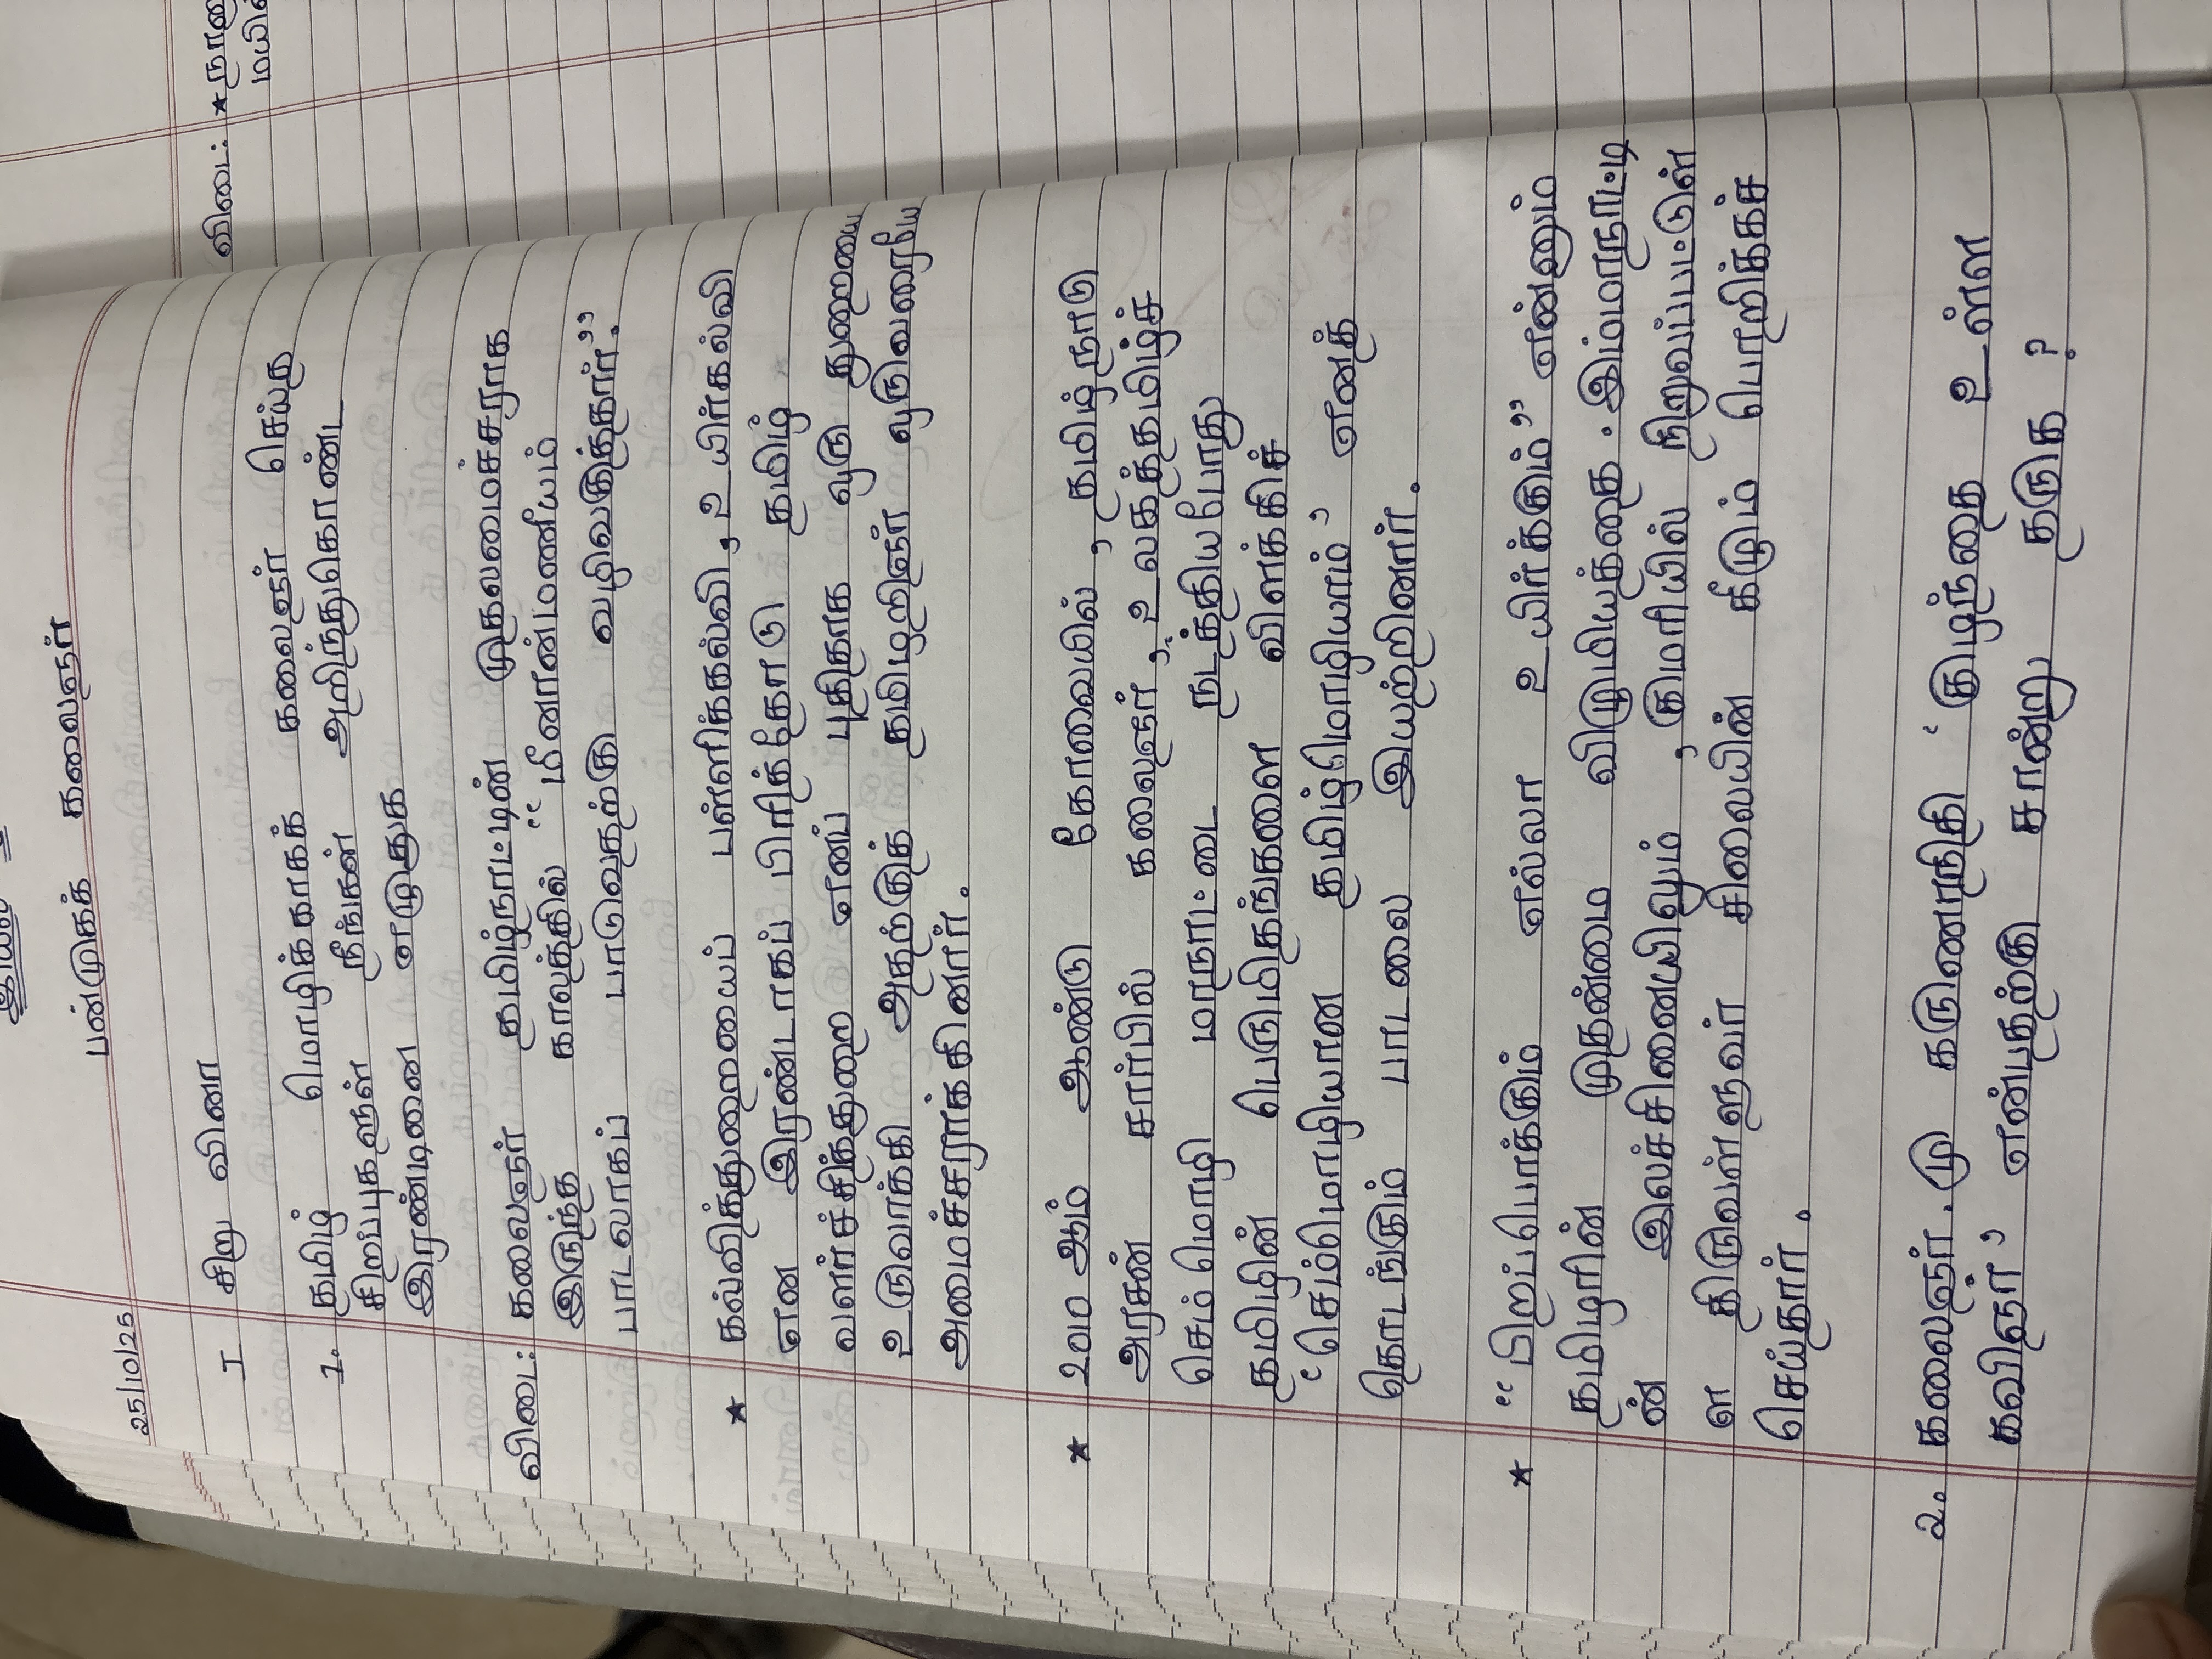 25/10/25
பன்முகக் கலைஞர்
I சிறு வினா
1. தமிழ் மொழிக்காகக் கலைஞர் செய்த
சிறப்புகளுள் நீங்கள் அறிந்துகொண்ட
இரண்டினை எழுதுக
விடை: கலைஞர் தமிழ்நாட்டின் முதலமைச்சராக
இருந்த காலத்தில் “மீனாண்மணீயம்
பாடலாகப் பாடுவதற்கு வழிவகுத்தார்”.
★ கல்வித்துறையைப் பள்ளிக்கல்வி, உயிர்கல்வி
என இரண்டாகப் பிரித்தோடு தமிழ்
வளர்ச்சித்துறை எனப் புதிதாக ஒரு துறையை
உருவாக்கி அதற்குத் தமிழறிஞர் ஒருவரையே
அமைச்சராக்கினார்.
★ 2010 ஆம் ஆண்டு கோவையில், தமிழ்நாடு
அரசன் சார்பில் கலைஞர், உலகத்தமிழ்ச்
செம்மொழி மாநாட்டை நடத்தியபோது
தமிழின் பெருமிதங்களை விளக்கிச்
‘செம்மொழியான தமிழ்மொழியாம்’ எனத்
தொடங்கும் பாடலை இயற்றினார்.
★ “பிறப்பொக்கும் எல்லா உயிர்க்கும்” என்னும்
தமிழரின் முதண்மை விழுமியத்தை. இம்மாநாட்டி
ன் இலச்சினையிலும், குமரியில் நிறுவப்பட்டுள்
ள திருவள்ளுவர் சிலையின் கீழும் பொறிக்கச்
செய்தார்.
2. கலைஞர்.மு கருணாநிதி ‘குழந்தை உள்ள
கவிஞர்’ என்பதற்கு சான்று தருக ?
விடை: ★ நா